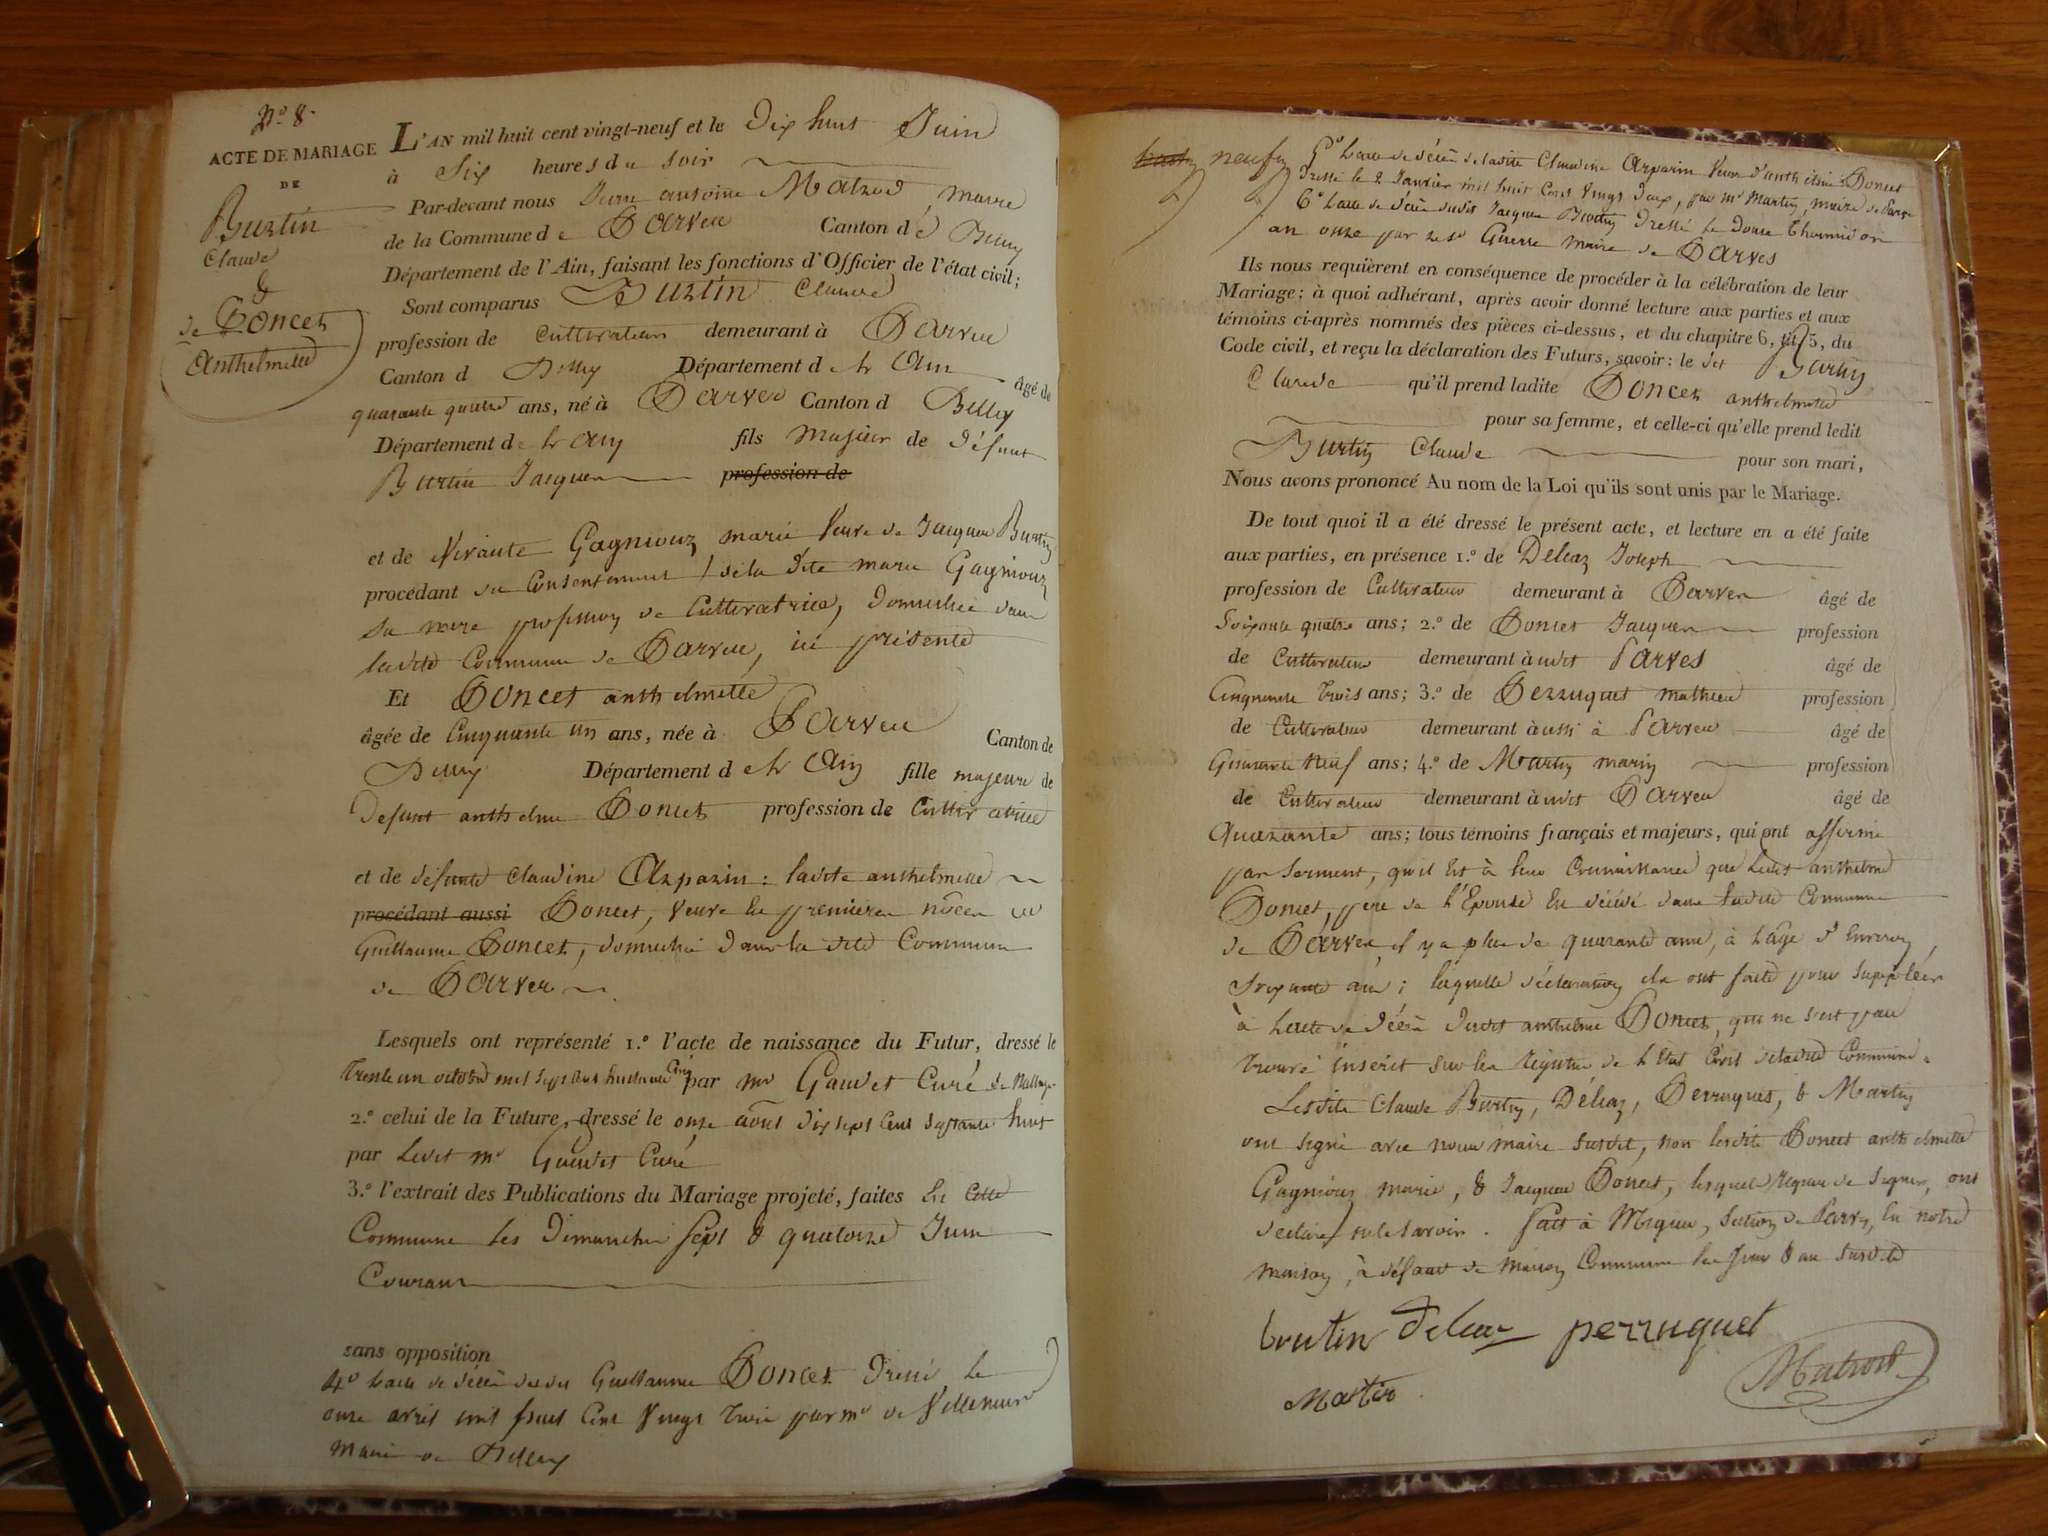 N.o 8.
ACTE DE MARIAGE
DE
Burtin
Claude
&
de Poncet
Anthelmette
L'AN mil huit cent vingt-neuf et le Dix huit Juin
à Six heures du soir
Par-devant nous Jean antoine Matrod, maire
de la Commune de Parves Canton de Belley
Département de l'Ain, faisant les fonctions d'Officier de l'état civil;
Sont comparus Burtin Claude
profession de Cultivateur demeurant à Parves
Canton d Belley Département de l'Ain âgé de
quarante quatre ans, né à Parves Canton d Belley
Département de l'ain fils Majeur de défunt
Burtin Jacques profession de
et de vivante Gagnioux marie veuve de Jacques Burtin
procédant du Consentement de la dite marie Gagnioux
sa mere profession de Cultivatrice, domiciliée dans
ladite Commune de Parves, ici présente
Et Poncet anthelmette
âgée de Cinquante un ans, née à Parves Canton de
Belley Département de l'Ain fille majeure de
Defunt anthelme Poncet profession de Cultivatrice
et de défunte Claudine Arparin: ladite anthelmette
procédant aussi Poncet, veuve en premieres nôces de
Guillaume Poncet, domiciliée dans la dite Commune
de Parves
Lesquels ont représenté 1.º l'acte de naissance du Futur, dressé le
trente un octobre mil sept cent huitante cinq par mr Gaudet Curé de
2.º celui de la Future, dressé le onze août dix sept cent septante huit
par Ledit mr Gaudet Curé
3.º l'extrait des Publications du Mariage projeté, faites en Cette
Commune les Dimanches sept & quatorze Juin
Courant
sans opposition
4º l'acte de décès dudit Guillaume Poncet Dressé le
onze avril mil huit Cent vingt trois par mr de Villeneuve
Maire de Belley
neuf 5º l'acte de décès de ladite Claudine Arparin Veuve d'anthelme Poncet
Dressé le 2 Janvier mil huit Cent Vingt Deux, par mr Martin, maire de Parves
6º l'acte de décès dudit Jacques Burtin Dressé le Douze thermidor
an onze par le sr Guerre maire de Parves
Ils nous requièrent en conséquence de procéder à la célébration de leur
Mariage; à quoi adhérant, après avoir donné lecture aux parties et aux
témoins ci-après nommés des pièces ci-dessus, et du chapitre 6, tit 5, du
Code civil, et reçu la déclaration des Futurs, savoir: le dit Burtin
Claude qu'il prend ladite Poncet anthelmette
pour sa femme, et celle-ci qu'elle prend ledit
Burtin Claude pour son mari,
Nous avons prononcé Au nom de la Loi qu'ils sont unis par le Mariage.
De tout quoi il a été dressé le présent acte, et lecture en a été faite
aux parties, en présence 1.º de Delcaz Joseph
profession de Cultivateur demeurant à Parves âgé de
Soixante quatre ans; 2.º de Poncet Jacques profession
de Cultivateur demeurant à udit Parves âgé de
Cinquante trois ans; 3.º de Perruquet mathieu profession
de Cultivateur demeurant aussi à Parves âgé de
Cinquante Neuf ans; 4.º de Martin marin profession
de Cultivateur demeurant à udit Parves âgé de
Quarante ans; tous témoins français et majeurs, qui ont affirmé
par serment, qu'il est à leur Connaissance que Ledit anthelme
Poncet, pere de l'Epouse est décédé dans ladite Commune
de Parves, il y a plus de quarante ans, à l'âge d'Environ
soixante ans; laquelle déclaration ils ont faite pour Suppléer
à l'acte de décès dudit anthelme Poncet, qui ne s'est pas
trouvé inscrit sur les Registres de l'Etat Civil de ladite Commune.
Lesdits Claude Burtin, Délcaz, Perruquet, & Martin
ont signé avec nous maire susdit, non lesdits Poncet anthelmette
Gagnioux marie, & Jacques Poncet, lesquels requis de Signer, ont
déclaré ne le savoir. fait à MQueu, Section de Parves, en notre
maison, à défaut de maison Commune les Jour & an susdits
burtin Delcaz perruquet
Martin
Matrod